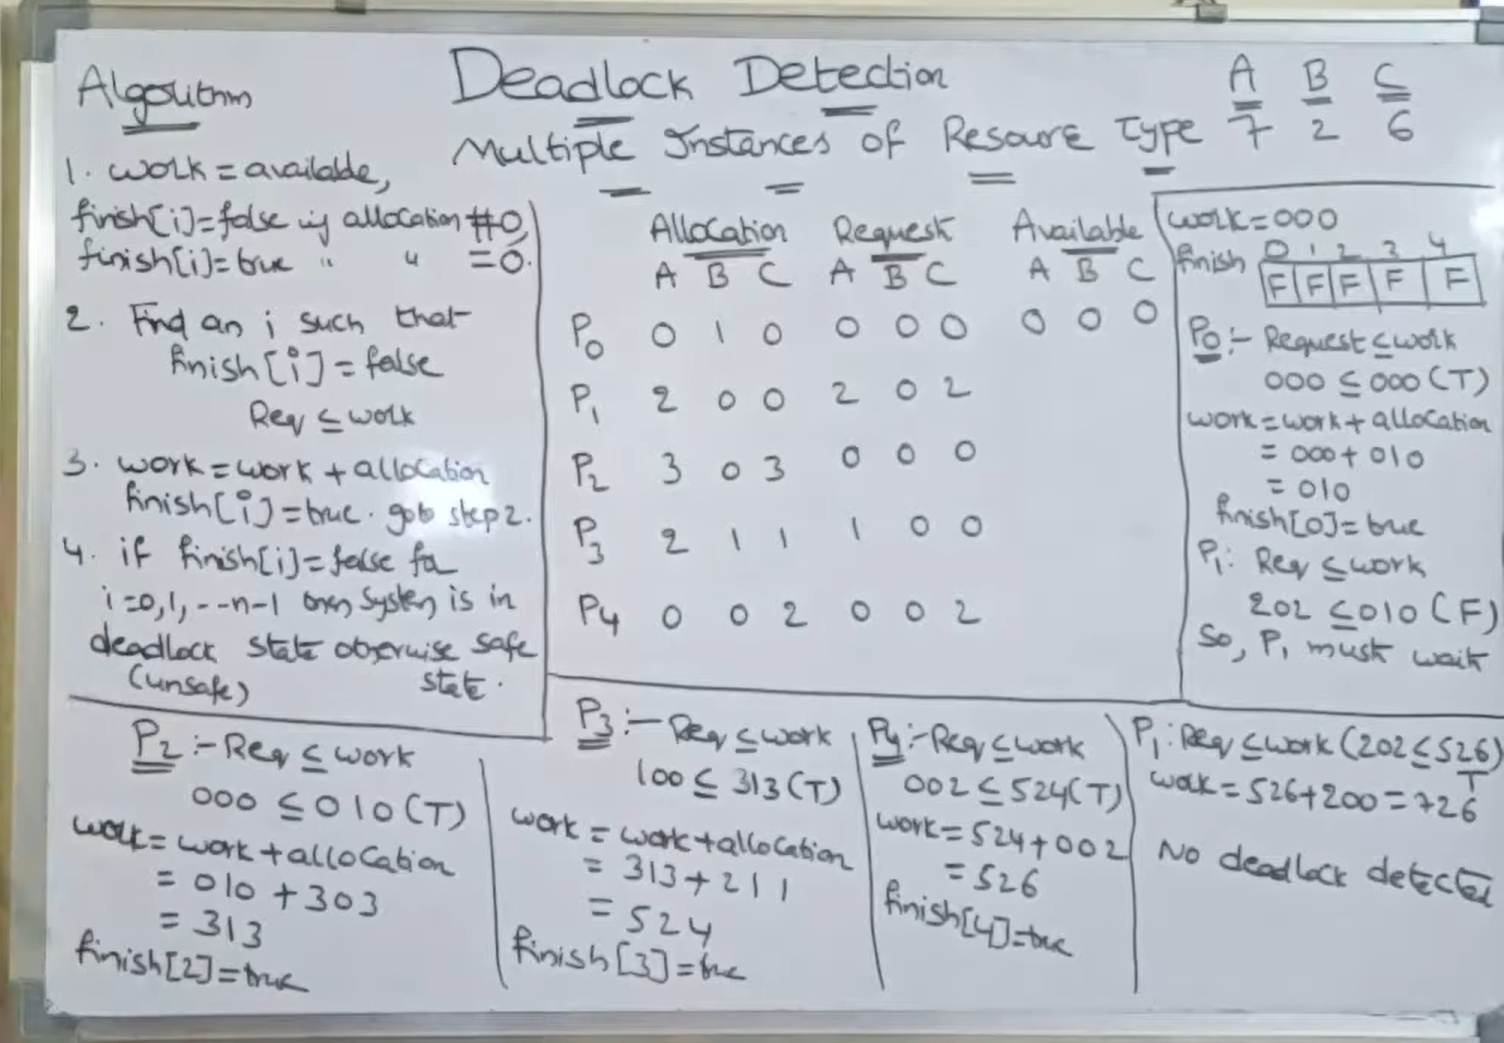 Deadlock Detection
Multiple Instances of Resoure Type
A B C
7 2 6
Algorithm
1. work = available,
finish[i]=false if allocation ≠0,
finish[i]=true " " =0.
2. Find an i such that
finish[i] = false
Req ≤ work
3. work = work + allocation
finish[i] = true. goto step 2.
4. if finish[i]=false for
i=0,1,--n-1 then system is in
deadlock state otherwise safe
(unsafe) state.
Allocation Request Available
A B C A B C A B C
P0 0 1 0 0 0 0 0 0 0
P1 2 0 0 2 0 2
P2 3 0 3 0 0 0
P3 2 1 1 1 0 0
P4 0 0 2 0 0 2
work=000
0 1 2 3 4
finish F F F F F
P0:- Request ≤ work
000 ≤ 000 (T)
work = work + allocation
= 000 + 010
= 010
finish[0]=true
P1: Req ≤ work
202 ≤ 010 (F)
So, P1 must wait
P2:- Req ≤ work
000 ≤ 010 (T)
work = work + allocation
= 010 + 303
= 313
finish[2]=true
P3:- Req ≤ work
100 ≤ 313 (T)
work = work + allocation
= 313 + 211
= 524
finish[3]=true
P4:- Req ≤ work
002 ≤ 524 (T)
work = 524 + 002
= 526
finish[4]=true
P1: Req ≤ work (202 ≤ 526)
T
work = 526 + 200 = 726
No deadlock detected